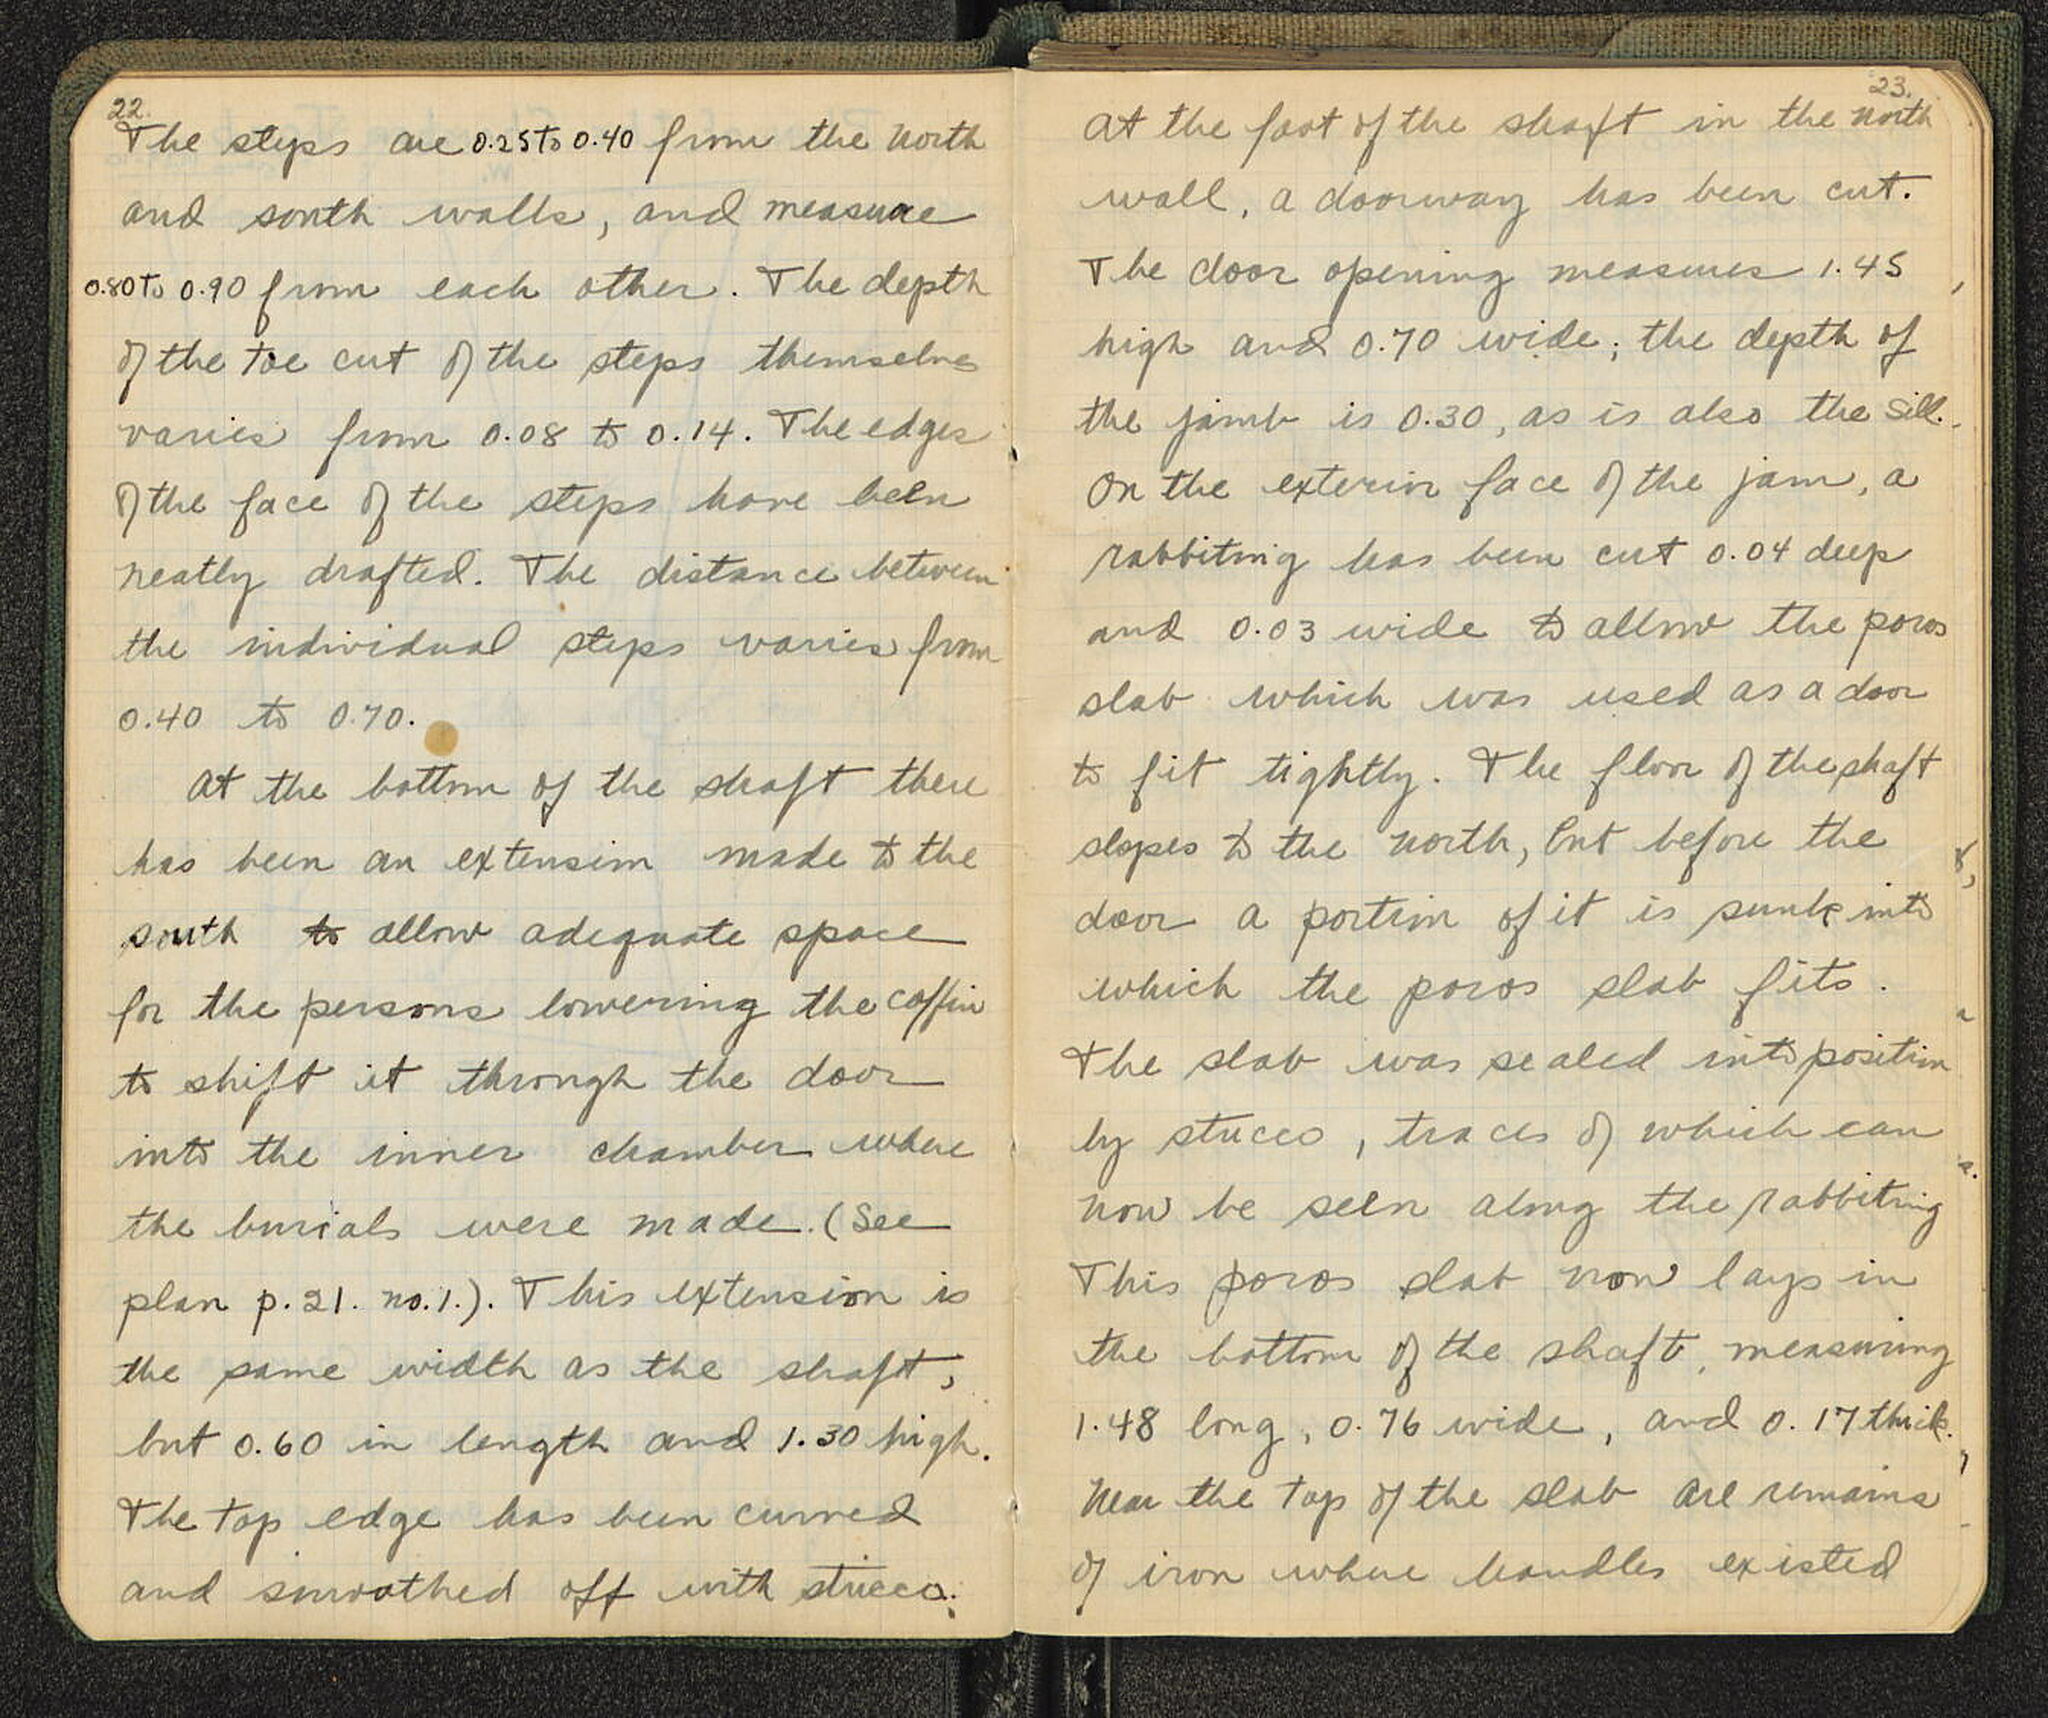 22.
The steps are 0.25 to 0.40 from the north
and south walls, and measure
0.80 to 0.90 from each other. The depth
of the toe cut of the steps themselves
varies from 0.08 to 0.14. The edges
of the face of the steps have been
neatly drafted. The distance between
the individual steps varies from
0.40 to 0.70.
At the bottom of the shaft there
has been an extension made to the
south to allow adequate space
for the persons lowering the coffin
to shift it through the door
into the inner chamber where
the burials were made. (See
plan p. 21. no. 1.). This extension is
the same width as the shaft,
but 0.60 in length and 1.30 high.
The top edge has been curved
and smoothed off with stucco.
23.
At the foot of the shaft in the north
wall, a doorway has been cut.
The door opening measures 1.45
high and 0.70 wide; the depth of
the jamb is 0.30, as is also the sill.
On the exterior face of the jam, a
rabbiting has been cut 0.04 deep
and 0.03 wide to allow the poros
slab which was used as a door
to fit tightly. The floor of the shaft
slopes to the north, but before the
door a portion of it is sunk into
which the poros slab fits.
The slab was sealed into position
by stucco, traces of which can
now be seen along the rabbiting
This poros slab now lays in
the bottom of the shaft, measuring
1.48 long, 0.76 wide, and 0.17 thick.
Near the top of the slab are remains
of iron where handles existed